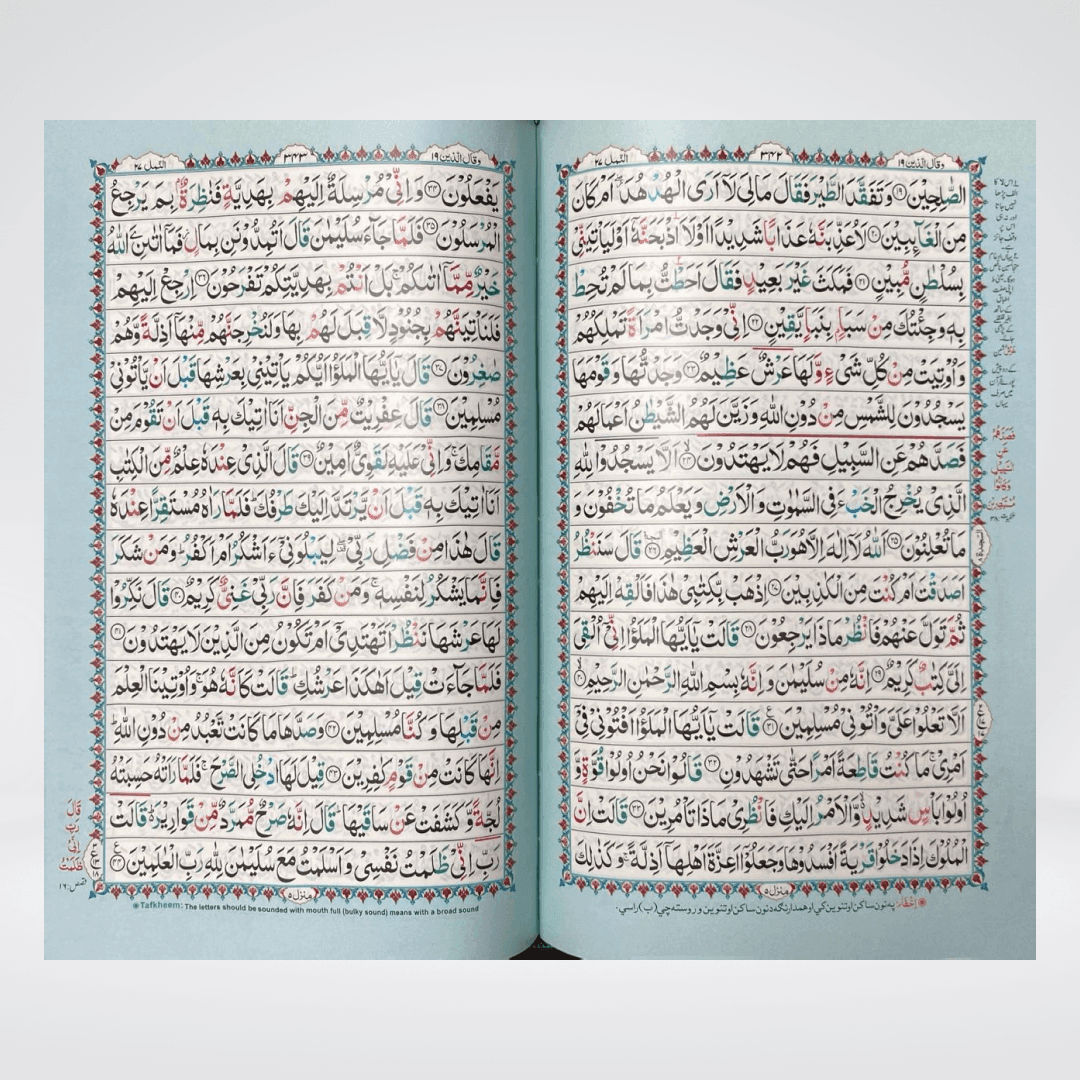 وقال الذين ١٩
٣٤٢
النمل ٢٧
الصّٰلِحِيْنَ ⑲ وَتَفَقَّدَ الطَّيْرَ فَقَالَ مَالِيَ لَآ اَرَى الْهُدْهُدَ ۖ اَمْ كَانَ
مِنَ الْغَآئِبِيْنَ ⑳ لَاُعَذِّبَنَّهٗ عَذَابًا شَدِيْدًا اَوْ لَاۡاَذْبَحَنَّهٗٓ اَوْ لَيَاْتِيَنِّيْ
بِسُلْطٰنٍ مُّبِيْنٍ ㉑ فَمَكَثَ غَيْرَ بَعِيْدٍ فَقَالَ اَحَطْتُّ بِمَا لَمْ تُحِطْ
بِهٖ وَجِئْتُكَ مِنْ سَبَاٍۭ بِنَبَاٍ يَّقِيْنٍ ㉒ اِنِّيْ وَجَدْتُّ امْرَاَةً تَمْلِكُهُمْ
وَاُوْتِيَتْ مِنْ كُلِّ شَيْءٍ وَّلَهَا عَرْشٌ عَظِيْمٌ ㉓ وَجَدْتُّهَا وَقَوْمَهَا
يَسْجُدُوْنَ لِلشَّمْسِ مِنْ دُوْنِ اللّٰهِ وَزَيَّنَ لَهُمُ الشَّيْطٰنُ اَعْمَالَهُمْ
فَصَدَّهُمْ عَنِ السَّبِيْلِ فَهُمْ لَا يَهْتَدُوْنَ ㉔ اَلَّا يَسْجُدُوْا لِلّٰهِ
الَّذِيْ يُخْرِجُ الْخَبْءَ فِي السَّمٰوٰتِ وَالْاَرْضِ وَيَعْلَمُ مَا تُخْفُوْنَ وَ
مَا تُعْلِنُوْنَ ㉕ اَللّٰهُ لَآ اِلٰهَ اِلَّا هُوَ رَبُّ الْعَرْشِ الْعَظِيْمِ ㉖ قَالَ سَنَنْظُرُ
اَصَدَقْتَ اَمْ كُنْتَ مِنَ الْكٰذِبِيْنَ ㉗ اِذْهَبْ بِّكِتٰبِيْ هٰذَا فَاَلْقِهْ اِلَيْهِمْ
ثُمَّ تَوَلَّ عَنْهُمْ فَانْظُرْ مَاذَا يَرْجِعُوْنَ ㉘ قَالَتْ يٰٓاَيُّهَا الْمَلَؤُا اِنِّيْٓ اُلْقِيَ
اِلَيَّ كِتٰبٌ كَرِيْمٌ ㉙ اِنَّهٗ مِنْ سُلَيْمٰنَ وَاِنَّهٗ بِسْمِ اللّٰهِ الرَّحْمٰنِ الرَّحِيْمِ ㉚
اَلَّا تَعْلُوْا عَلَيَّ وَاْتُوْنِيْ مُسْلِمِيْنَ ㉛ قَالَتْ يٰٓاَيُّهَا الْمَلَؤُا اَفْتُوْنِيْ فِيْٓ
اَمْرِيْ ۚ مَا كُنْتُ قَاطِعَةً اَمْرًا حَتّٰى تَشْهَدُوْنِ ㉜ قَالُوْا نَحْنُ اُولُوْا قُوَّةٍ وَّ
اُولُوْا بَاْسٍ شَدِيْدٍ ۙ وَّالْاَمْرُ اِلَيْكِ فَانْظُرِيْ مَاذَا تَاْمُرِيْنَ ㉝ قَالَتْ اِنَّ
الْمُلُوْكَ اِذَا دَخَلُوْا قَرْيَةً اَفْسَدُوْهَا وَجَعَلُوْٓا اَعِزَّةَ اَهْلِهَآ اَذِلَّةً ۚ وَكَذٰلِكَ
منزل ٥
وقال الذين ١٩
٣٤٣
النمل ٢٧
يَفْعَلُوْنَ ㉞ وَاِنِّيْ مُرْسِلَةٌ اِلَيْهِمْ بِهَدِيَّةٍ فَنٰظِرَةٌۢ بِمَ يَرْجِعُ
الْمُرْسَلُوْنَ ㉟ فَلَمَّا جَآءَ سُلَيْمٰنَ قَالَ اَتُمِدُّوْنَنِ بِمَالٍ ۡ فَمَآ اٰتٰىنِۦَ اللّٰهُ
خَيْرٌ مِّمَّآ اٰتٰىكُمْ ۚ بَلْ اَنْتُمْ بِهَدِيَّتِكُمْ تَفْرَحُوْنَ ㊱ اِرْجِعْ اِلَيْهِمْ
فَلَنَاْتِيَنَّهُمْ بِجُنُوْدٍ لَّا قِبَلَ لَهُمْ بِهَا وَلَنُخْرِجَنَّهُمْ مِّنْهَآ اَذِلَّةً وَّهُمْ
صٰغِرُوْنَ ㊲ قَالَ يٰٓاَيُّهَا الْمَلَؤُا اَيُّكُمْ يَاْتِيْنِيْ بِعَرْشِهَا قَبْلَ اَنْ يَّاْتُوْنِيْ
مُسْلِمِيْنَ ㊳ قَالَ عِفْرِيْتٌ مِّنَ الْجِنِّ اَنَا اٰتِيْكَ بِهٖ قَبْلَ اَنْ تَقُوْمَ مِنْ
مَّقَامِكَ ۚ وَاِنِّيْ عَلَيْهِ لَقَوِيٌّ اَمِيْنٌ ㊴ قَالَ الَّذِيْ عِنْدَهٗ عِلْمٌ مِّنَ الْكِتٰبِ
اَنَا اٰتِيْكَ بِهٖ قَبْلَ اَنْ يَّرْتَدَّ اِلَيْكَ طَرْفُكَ ۭ فَلَمَّا رَاٰهُ مُسْتَقِرًّا عِنْدَهٗ
قَالَ هٰذَا مِنْ فَضْلِ رَبِّيْ ۣ لِيَبْلُوَنِيْٓ ءَاَشْكُرُ اَمْ اَكْفُرُ ۭ وَمَنْ شَكَرَ
فَاِنَّمَا يَشْكُرُ لِنَفْسِهٖ ۚ وَمَنْ كَفَرَ فَاِنَّ رَبِّيْ غَنِيٌّ كَرِيْمٌ ㊵ قَالَ نَكِّرُوْا
لَهَا عَرْشَهَا نَنْظُرْ اَتَهْتَدِيْٓ اَمْ تَكُوْنُ مِنَ الَّذِيْنَ لَا يَهْتَدُوْنَ ㊶
فَلَمَّا جَآءَتْ قِيْلَ اَهٰكَذَا عَرْشُكِ ۭ قَالَتْ كَاَنَّهٗ هُوَ ۚ وَاُوْتِيْنَا الْعِلْمَ
مِنْ قَبْلِهَا وَكُنَّا مُسْلِمِيْنَ ㊷ وَصَدَّهَا مَا كَانَتْ تَّعْبُدُ مِنْ دُوْنِ اللّٰهِ ۭ
اِنَّهَا كَانَتْ مِنْ قَوْمٍ كٰفِرِيْنَ ㊸ قِيْلَ لَهَا ادْخُلِي الصَّرْحَ ۚ فَلَمَّا رَاَتْهُ حَسِبَتْهُ
لُجَّةً وَّكَشَفَتْ عَنْ سَاقَيْهَا ۭ قَالَ اِنَّهٗ صَرْحٌ مُّمَرَّدٌ مِّنْ قَوَارِيْرَ ۭ قَالَتْ
رَبِّ اِنِّيْ ظَلَمْتُ نَفْسِيْ وَاَسْلَمْتُ مَعَ سُلَيْمٰنَ لِلّٰهِ رَبِّ الْعٰلَمِيْنَ ㊹
منزل ٥
قَالَ
رَبِّ
اِنِّيْ
ظَلَمْتُ
قصص: ١٦
Tafkheem: The letters should be sounded with mouth full (bulky sound) means with a broad sound